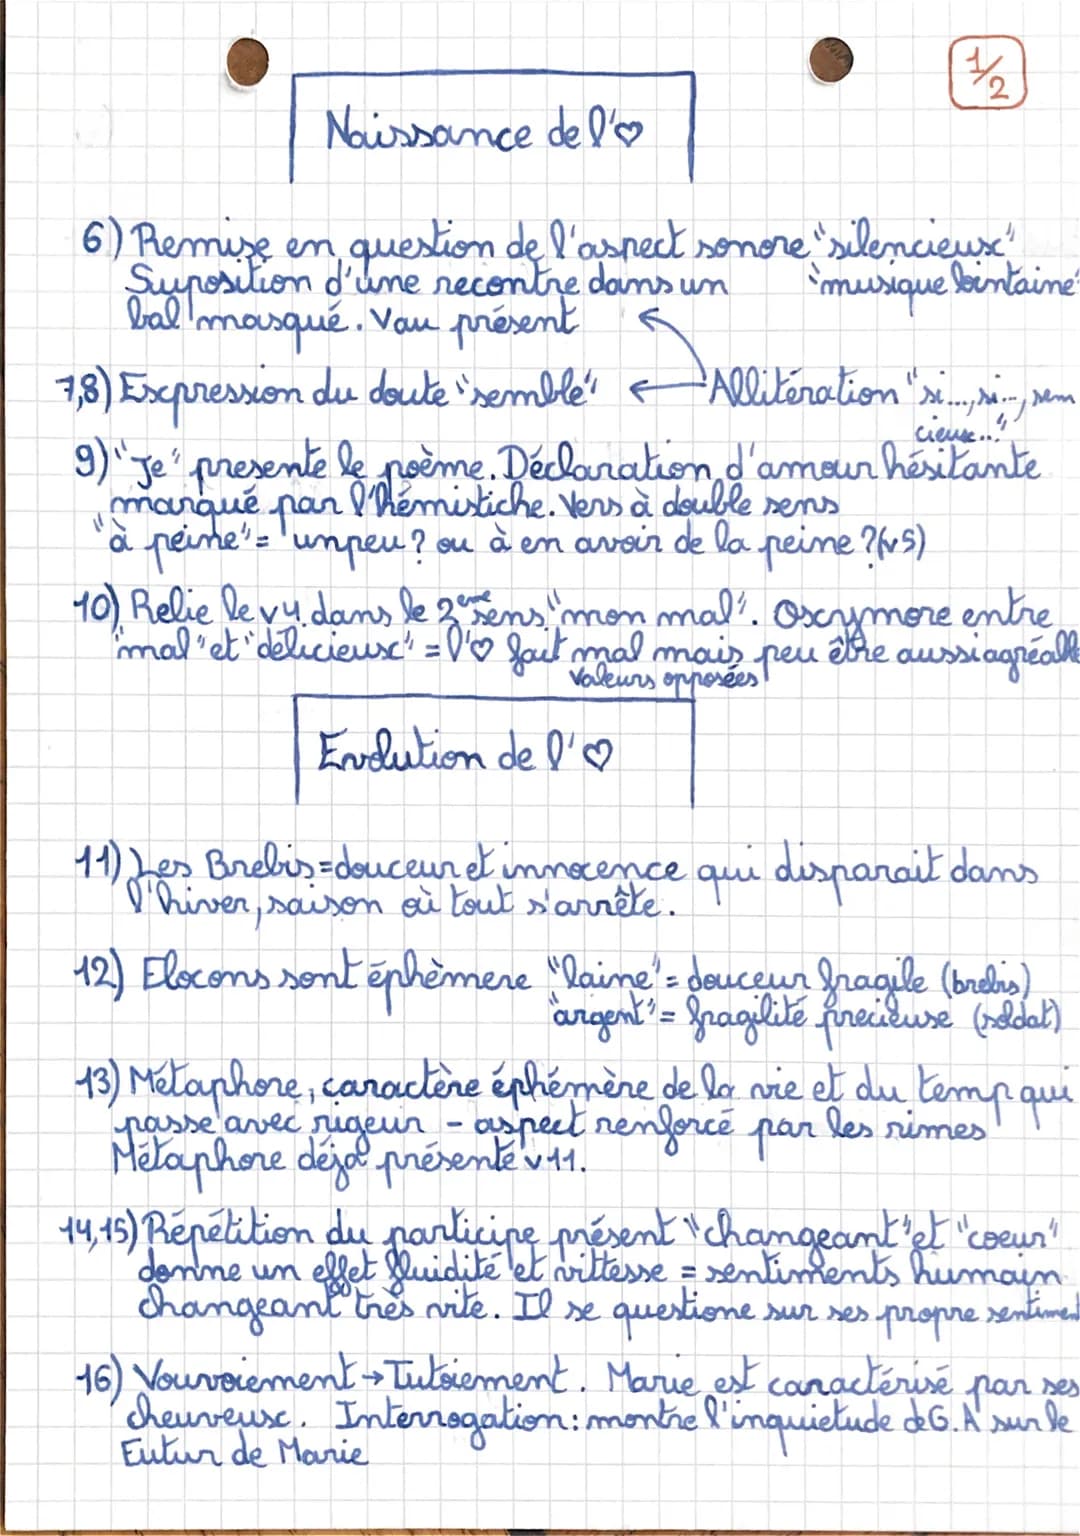 1/2
Naissance de l'♡
6) Remise en question de l'aspect sonore "silencieux"
Suposition d'une recontre dans un "musique lointaine"
bal masqué. Vau présent
7,8) Expression du doute "semble" ← Allitération "si..., si..., sem
cieux..."
9) "Je" presente le poème. Déclaration d'amour hésitante
marqué par l'hémistiche. Vers à double sens
"à peine" = "un peu? ou à en avoir de la peine? (v5)
10) Relie le v4 dans le 2ème sens "mon mal". Oxymore entre
"mal" et "délicieux" = l'♡ fait mal mais peu être aussi agréable
Valeurs opposées
Evolution de l'♡
11) Les Brebis = douceur et innocence qui disparait dans
l'hiver, saison où tout s'arrête.
12) Flocons sont éphèmere "laine" = douceur fragile (brebis)
"argent" = fragilité precieuse (soldat)
13) Métaphore, caractère éphémère de la vie et du temp qui
passe avec rigeur - aspect renforcé par les rimes
Métaphore déjà présenté v11.
14,15) Répétition du participe présent "changeant" et "coeur"
donne un effet fluidité et vittesse = sentiments humain
changeant très vite. Il se questione sur ses propre sentiment
16) Vouvoiement → Tutoiement. Marie est caractérisé par ses
cheuveux. Interrogation : montre l'inquietude de G.A sur le
Futur de Marie